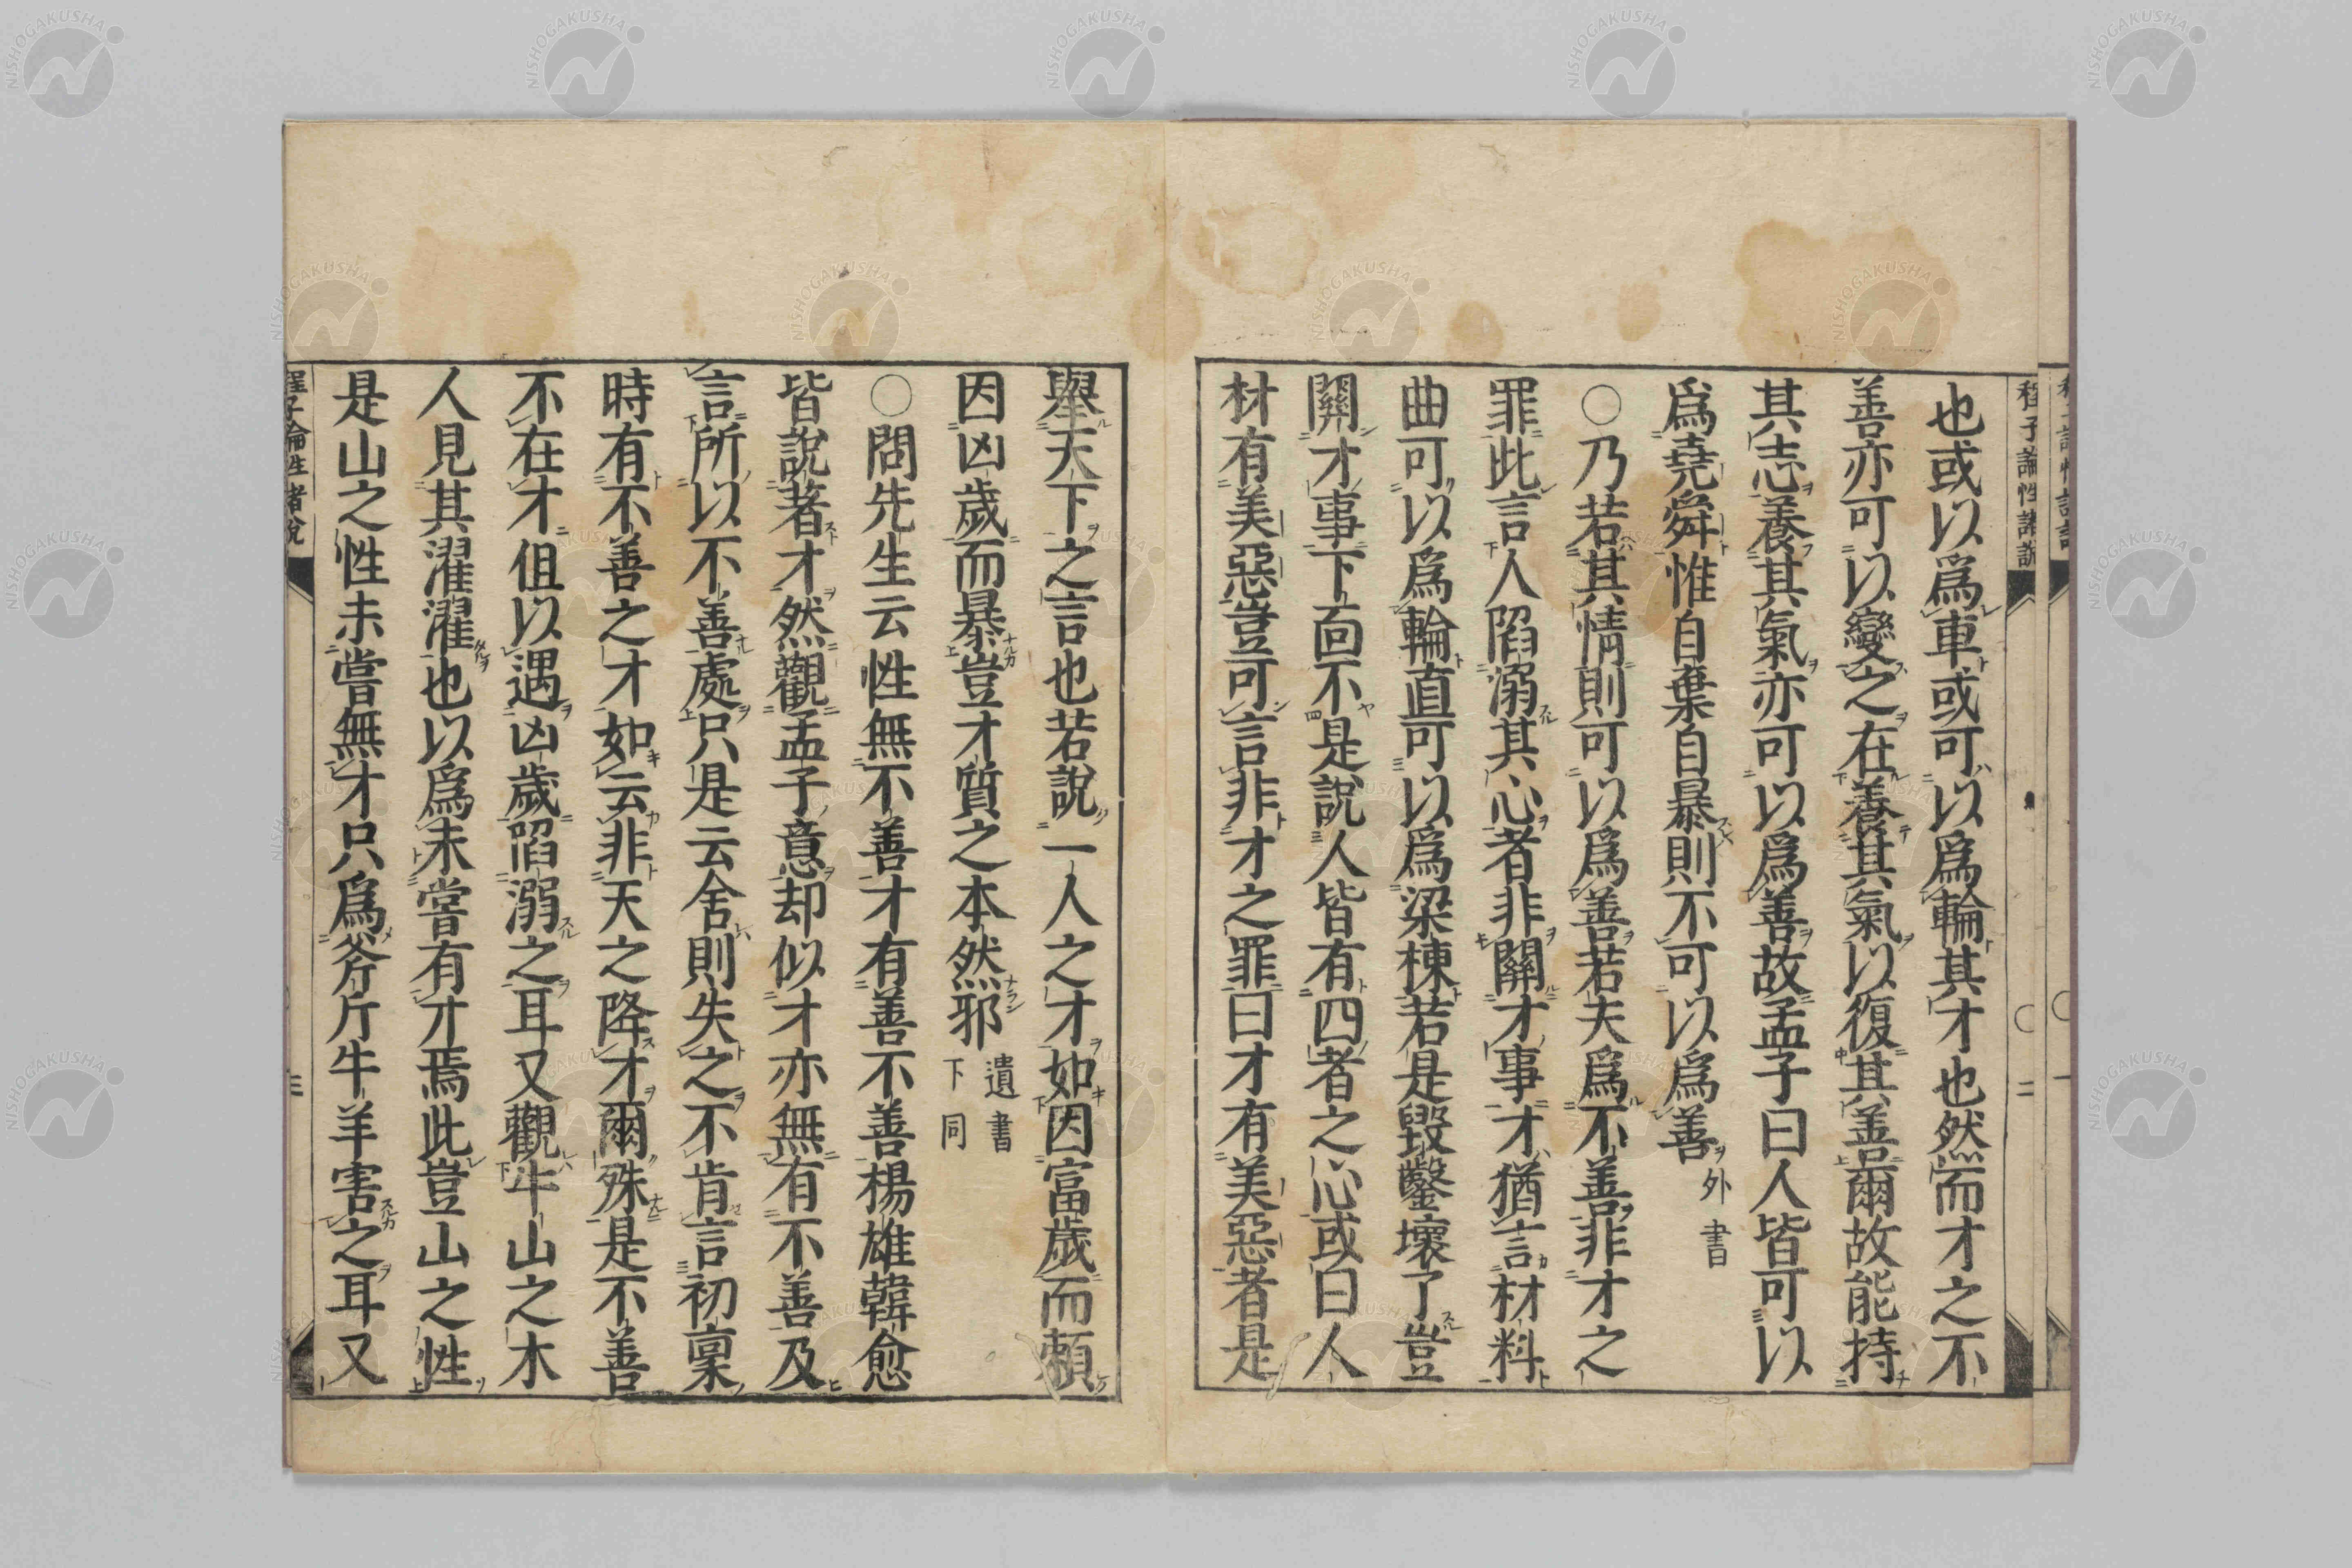 程子論性諸説
二
也或以爲車或可以爲輪其才也然而才之不
善亦可以變之在養其氣以復其善爾故能持
其志養其氣亦可以爲善故孟子曰人皆可以
爲堯舜惟自棄自暴則不可以爲善外書
○乃若其情則可以爲善若夫爲不善非才之
罪此言人陷溺其心者非關才事才猶言材料
曲可以爲輪直可以爲梁棟若是毀鑿壞了豈
關才事下面不是説人皆有四者之心或曰人
材有美惡豈可言非才之罪曰才有美惡者是
舉天下之言也若説一人之才如因富歲而賴
因凶歲而暴豈才質之本然邪遺書下同
○問先生云性無不善才有善不善楊雄韓愈
皆説著才然觀孟子意却似才亦無有不善及
言所以不善處只是云舍則失之不肯言初稟
時有不善之才如云非天之降才爾殊是不善
不在才但以遇凶歲陷溺之耳又觀牛山之木
人見其濯濯也以爲未嘗有才焉此豈山之性
是山之性未嘗無才只爲斧斤牛羊害之耳又
程子論性諸説
三
NISHOGAKUSHA